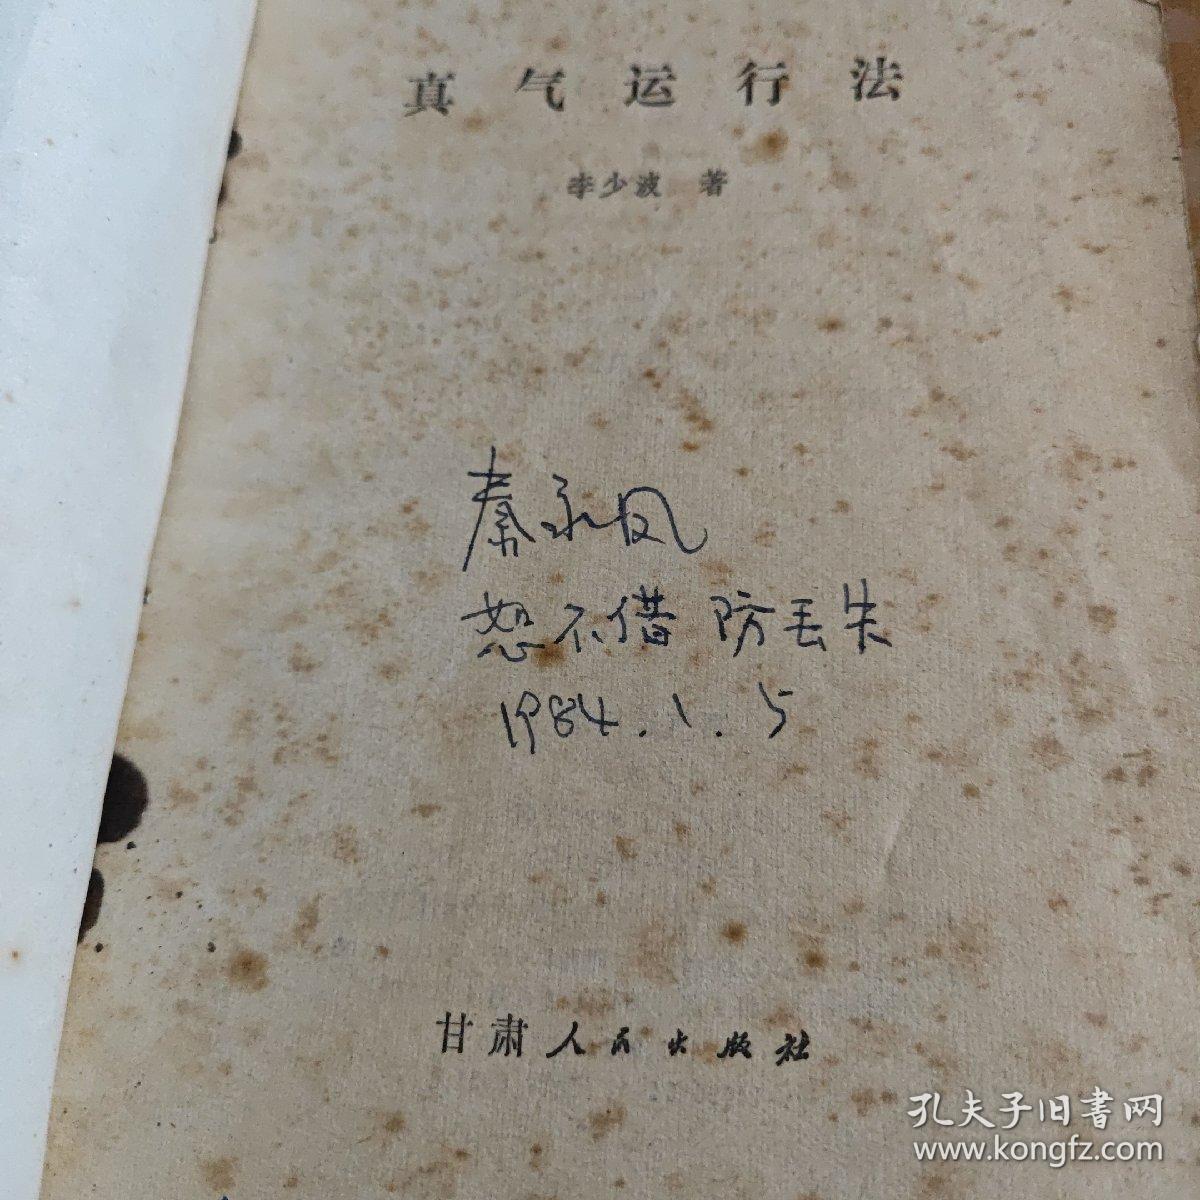 真气运行法
李少波 著
秦永凤
恕不借 防丢失
1984.1.5
甘肃人民出版社
孔夫子旧書网
www.kongfz.com